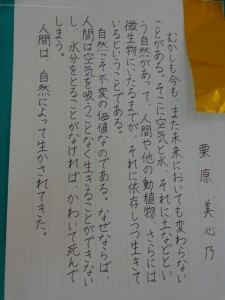 栗原美心乃
むかしも今も、また未来においても変わらない
ことがある。そこに空気と水、それに土などとい
う自然があって、人間や他の動植物、さらには
微生物にいたるまでが、それに依存しつつ生きて
いるということである。
自然こそ不変の価値なのである。なぜならば、
人間は空気を吸うことなく生きることができない
し、水分をとることがなければ、かわいて死んで
しまう。
人間は、自然によって生かされてきた。